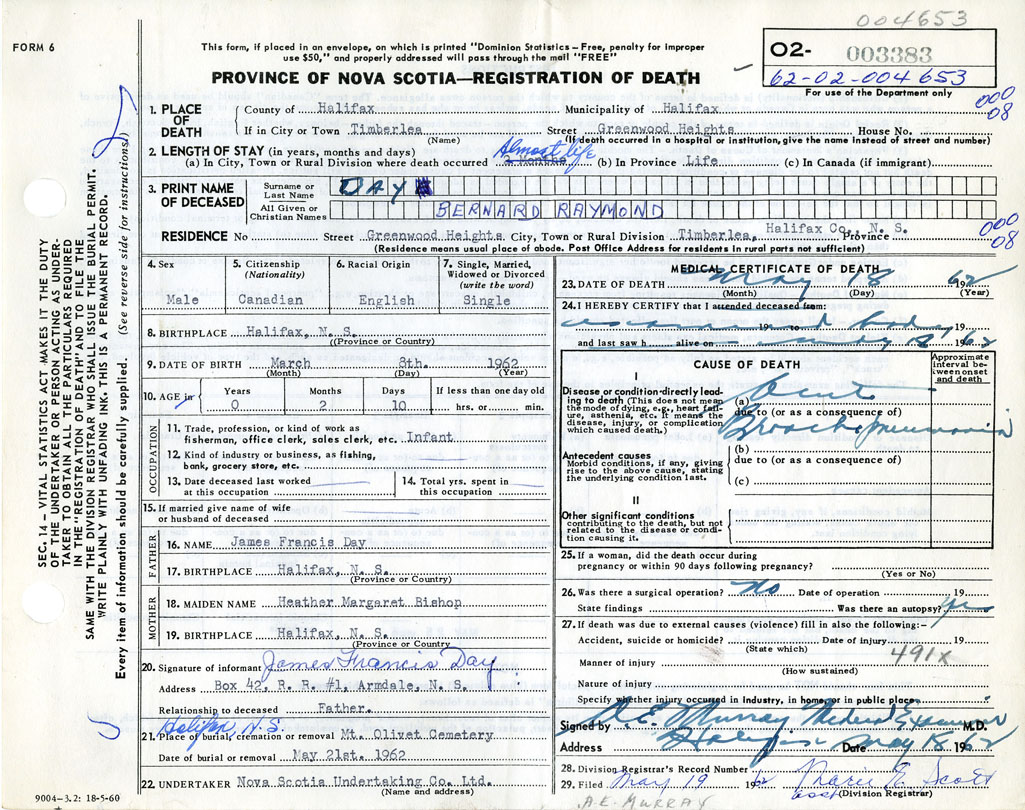 004653
FORM 6
This form, if placed in an envelope, on which is printed "Dominion Statistics – Free, penalty for improper
use $50," and properly addressed will pass through the mail "FREE"
PROVINCE OF NOVA SCOTIA—REGISTRATION OF DEATH
O2- 003383
62-02-004653
For use of the Department only
000
08
SEC. 14 – VITAL STATISTICS ACT MAKES IT THE DUTY
OF THE UNDERTAKER OR PERSON ACTING AS UNDER-
TAKER TO OBTAIN ALL THE PARTICULARS REQUIRED
IN THE "REGISTRATION OF DEATH" AND TO FILE THE
SAME WITH THE DIVISION REGISTRAR WHO SHALL ISSUE THE BURIAL PERMIT.
WRITE PLAINLY WITH UNFADING INK. THIS IS A PERMANENT RECORD.
Every item of information should be carefully supplied. (See reverse side for instructions)
1. PLACE OF DEATH
County of Halifax Municipality of Halifax
If in City or Town Timberlea Street Greenwood Heights House No.
(Name) (If death occurred in a hospital or institution, give the name instead of street and number)
2. LENGTH OF STAY (in years, months and days) Almost life
(a) In City, Town or Rural Division where death occurred 2 Months (b) In Province Life (c) In Canada (if immigrant)
3. PRINT NAME OF DECEASED
Surname or Last Name DAY
All Given or Christian Names BERNARD RAYMOND
000
08
RESIDENCE No Street Greenwood Heights City, Town or Rural Division Timberlea, Halifax Co., N. S. Province
(Residence means usual place of abode. Post Office Address for residents in rural parts not sufficient)
4. Sex
Male
5. Citizenship (Nationality)
Canadian
6. Racial Origin
English
7. Single, Married, Widowed or Divorced (write the word)
Single
8. BIRTHPLACE Halifax, N. S.
((Province or Country)
9. DATE OF BIRTH March 8th. 1962
(Month) (Day) (Year)
10. AGE in Years Months Days If less than one day old
0 2 10 hrs. or min.
OCCUPATION
11. Trade, profession, or kind of work as
fisherman, office clerk, sales clerk, etc. Infant
12. Kind of industry or business, as fishing,
bank, grocery store, etc.
13. Date deceased last worked at this occupation
14. Total yrs. spent in this occupation
15. If married give name of wife
or husband of deceased
FATHER
16. NAME James Francis Day
17. BIRTHPLACE Halifax, N. S.
(Province or Country)
MOTHER
18. MAIDEN NAME Heather Margaret Bishop
19. BIRTHPLACE Halifax, N. S.
(Province or Country)
20. Signature of informant James Francis Day
Address Box 42, R. R. #1, Armdale, N. S.
Relationship to deceased Father.
Halifax, N.S.
21. Place of burial, cremation or removal Mt. Olivet Cemetery
Date of burial or removal May 21st. 1962
22. UNDERTAKER Nova Scotia Undertaking Co. Ltd.
(Name and address)
9004-3.2: 18-5-60
MEDICAL CERTIFICATE OF DEATH
23. DATE OF DEATH May 18 1962
(Month) (Day) (Year)
24. I HEREBY CERTIFY that I attended deceased from:
examined body 19 to 19
and last saw h alive on May 18 1962
CAUSE OF DEATH
Approximate interval between onset and death
I
Disease or condition directly leading to death (This does not mean the mode of dying, e.g., heart failure, asthenia, etc. It means the disease, injury, or complication which caused death.)
(a) Acute
due to (or as a consequence of)
Bronchopneumonia
Antecedent causes
Morbid conditions, if any, giving rise to the above cause, stating the underlying condition last.
(b)
due to (or as a consequence of)
(c)
II
Other significant conditions
contributing to the death, but not related to the disease or condition causing it.
25. If a woman, did the death occur during
pregnancy or within 90 days following pregnancy?
(Yes or No)
26. Was there a surgical operation? No Date of operation 19
State findings Was there an autopsy? Yes
27. If death was due to external causes (violence) fill in also the following:–
Accident, suicide or homicide? Date of injury 19
(State which)
491X
Manner of injury
(How sustained)
Nature of injury
Specify whether injury occurred in industry, in home or in public place
Signed by A E Murray Medical Examiner M.D.
Address Halifax Date May 18 1962
28. Division Registrar's Record Number
29. Filed May 19 1962 Marie E Scott
asst (Division Registrar)
A.E. MURRAY